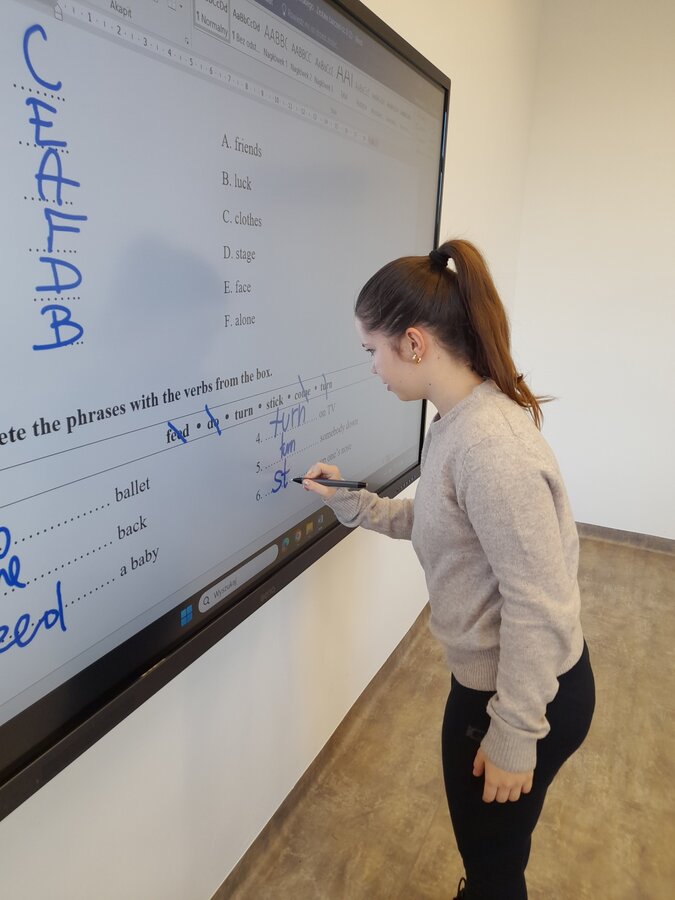 Akapit
AaBbCcDd
1 Normalny
AaBbCcDd
1 Bez odst...
AABBC
Nagłówek 1
AABBCC
Nagłówek 2
AaBbCcI
Nagłówek 3
C
E
A
F
D
B
A. friends
B. luck
C. clothes
D. stage
E. face
F. alone
ete the phrases with the verbs from the box.
feed • do • turn • stick • come • turn
ballet
back
a baby
eed
4. turn on TV
5. turn somebody down
6. st one's nose
Wyszukaj